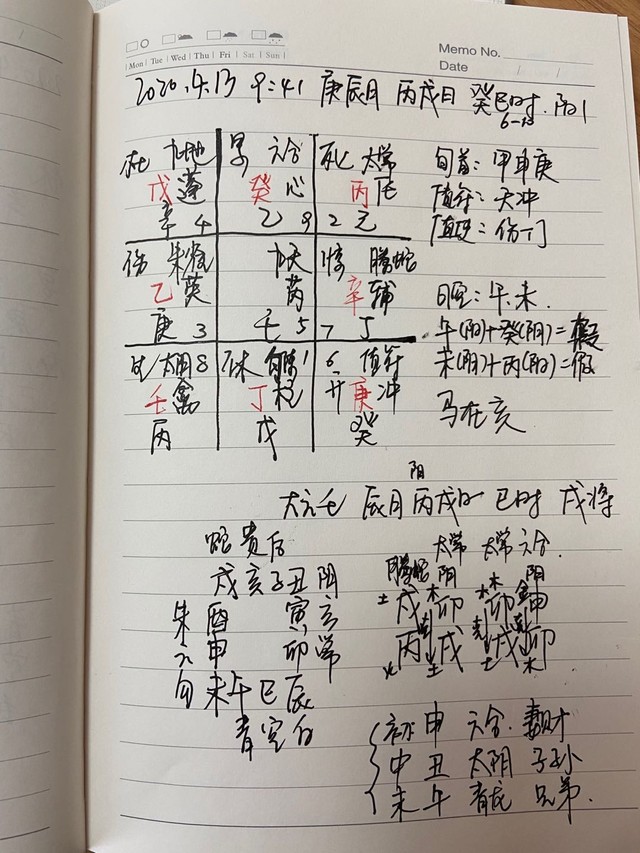 Memo No.
Mon Tue Wed Thu Fri Sat Sun
Date
2020.4.13 9:41 庚辰月 丙戌日 癸巳时 阳1
杜 九地 景 六合 死 太常
戊 蓬 癸 心 丙 任
辛 4 乙 9 2 元
旬首：甲申庚
值符：天冲
值使：伤门
伤 朱雀 九天 惊 腾蛇
乙 英 芮 辛 辅
庚 3 壬 5 7 丁
日空：午.未.
午(阳)+癸(阴)=
未(阴)+丙(阳)=假
生 太阴 8 休 1 6 值符
壬 禽 丁 柱 开 庚 冲
丙 戊 癸
马在亥
阳
大六壬 辰月 丙戌日 巳时 戌将
蛇 贵 后
戌 亥 子 丑 阴
朱 酉 寅 玄
六 申 卯 常
勾 未 午 巳 辰
青 空 白
太常 太常 六合
腾蛇 阴 阴
土 戌 木 卯 木 卯 金 申
丙 戌 戌 卯
火 土 土 木
初 申 六合 妻财
中 丑 太阴 子孙
末 午 青龙 兄弟.